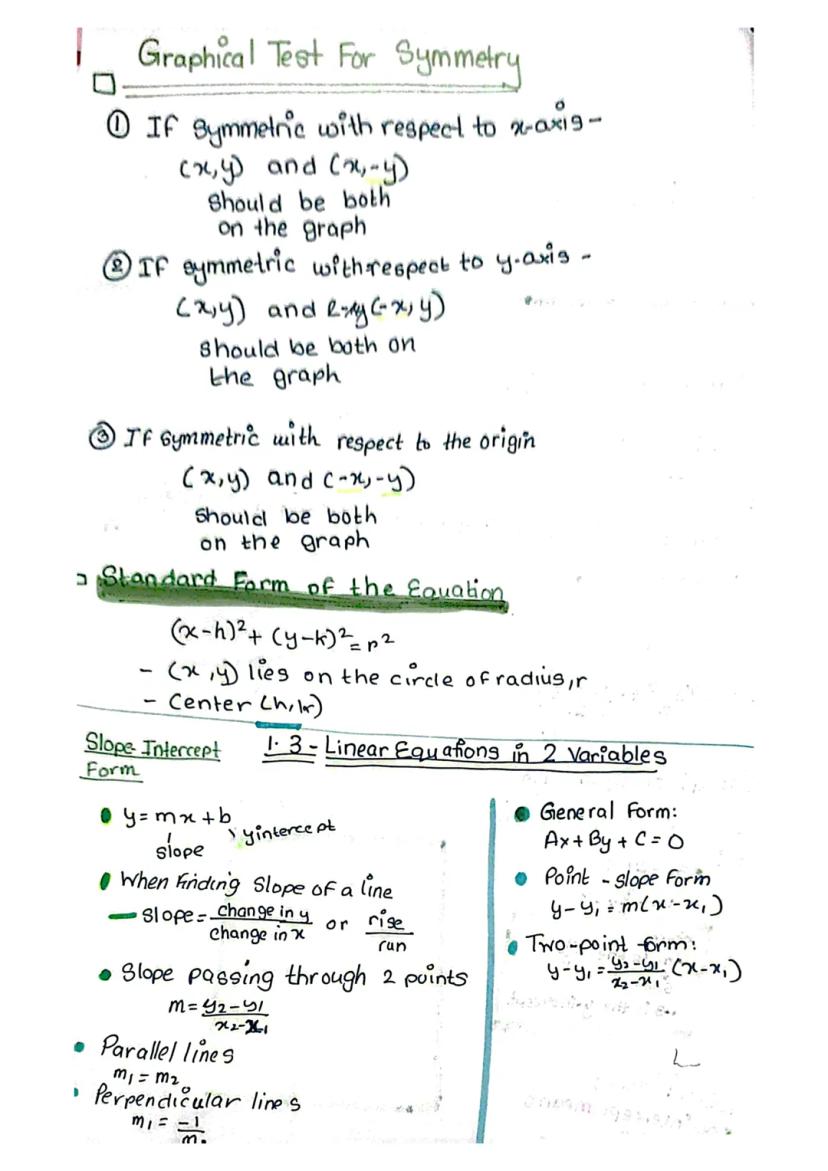 Graphical Test For Symmetry
① If symmetric with respect to x-axis -
(x,y) and (x,-y)
should be both
on the graph
② If symmetric with respect to y-axis -
(x,y) and (-x, y)
should be both on
the graph
③ If symmetric with respect to the origin
(x,y) and (-x,-y)
should be both
on the graph
Standard Form of the Equation
(x-h)²+ (y-k)²=r²
- (x,y) lies on the circle of radius, r
- Center (h,k)
1.3 - Linear Equations in 2 Variables
Slope-Intercept
Form
y = mx + b
yintercept
slope
When finding slope of a line
- slope = change in y / change in x or rise / run
Slope passing through 2 points
m = y₂-y₁ / x₂-x₁
Parallel lines
m₁ = m₂
Perpendicular lines
m₁ = -1 / m
General Form:
Ax + By + C = 0
Point - slope form
y-y₁ = m(x-x₁)
Two-point form:
y-y₁ = y₂-y₁ / x₂-x₁ (x-x₁)